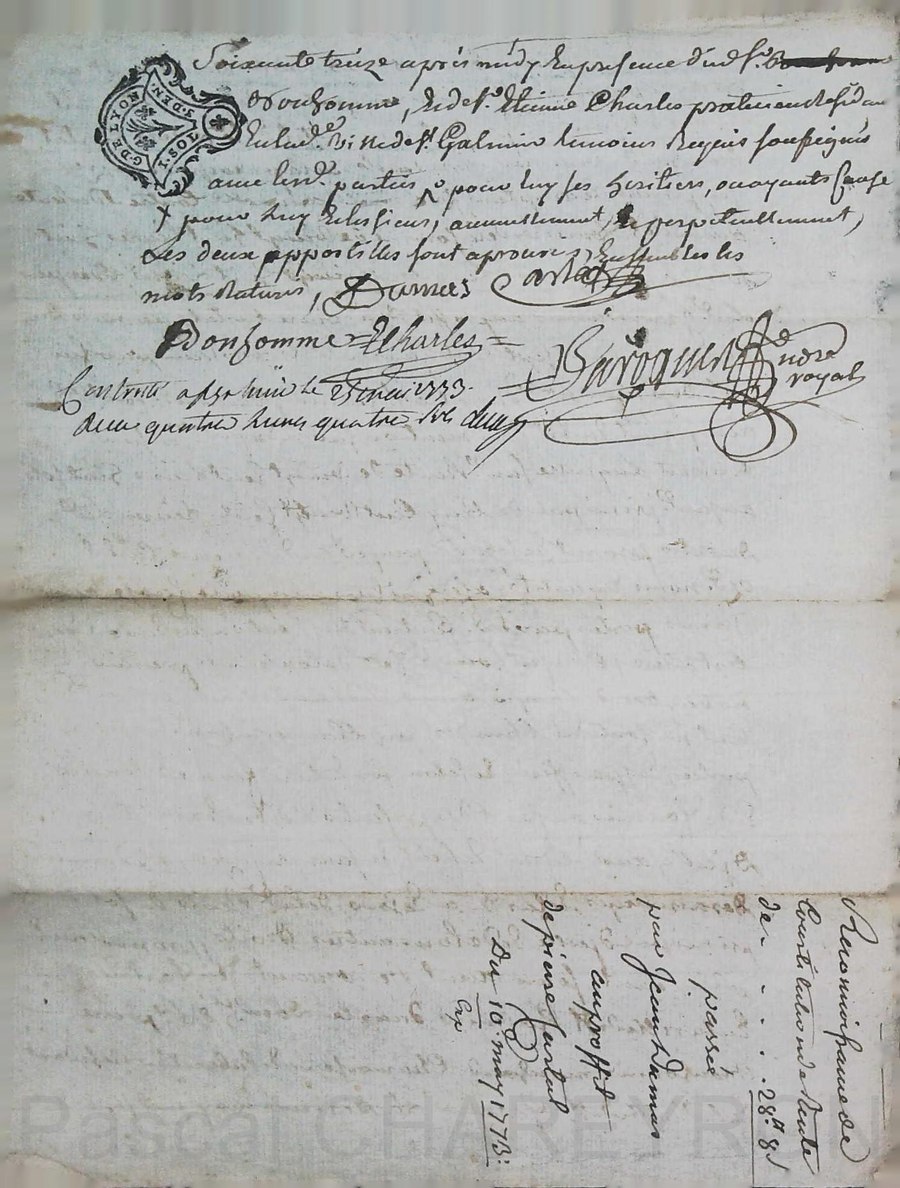 Soixante treize apres midy En presence du d. Sr.
Bonhomme, Et de Sr. Etienne Charles praticien Residan
En lad. Ville de St. Galmier temoins Requis soussignés
avec lesd. parties pour luy ses heritiers, ou ayants Cause
pour luy Et les siens, annuellement, Et perpetuellement,
Les deux appostilles sont aprouvés, Ensemble les
mots Raturés, Damas
Bonhomme ECharles
Nore
royal
Controllé a St. Galmier le 25 mai 1773.
quatre livres quatre sols
G.DE LYON
Reconnoissance de
Constitution de Rente
de . . . . 28# 8s
passée
par Jean Damas
au proffit
de pierre
Du 10e may 1773:
Exp
Pascal CHAREYRON